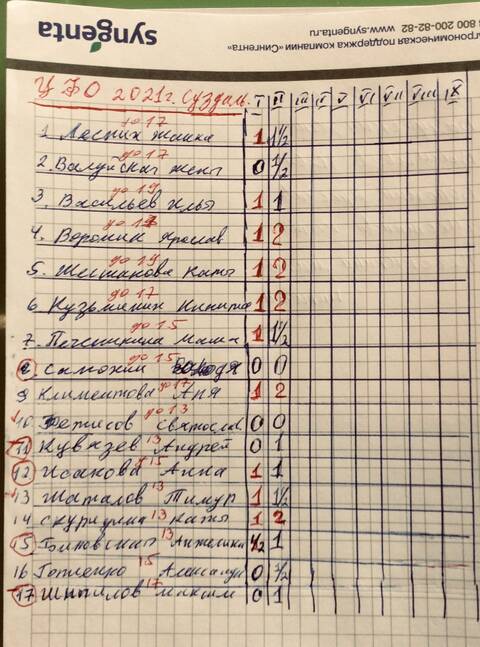 8 800 200-82-82 www.syngenta.ru
грономическая поддержка компании «Сингента»
syngenta
ЦФО 2021г. Суздаль. I II III IV V VI VII VIII IX
до 17
1. Лесних 1 1½
до 17
2. Валуйская Жени 0 ½
до 19
3. Васильев Илья 1 1
4. Воронин Ярослав 1 2
до 19
5. Шестакова Катя 1 2
до 17
6. Кузьминих Никита 1 2
до 15
7. Печенкина Маша 1 1½
до 15
8. 0 0
до 17
9 Климентова Аня 1 2
до 13
10. Святослав 0 0
11 13 Андрей 0 1
12 Исакова 15 Анна 1 1
13 Шаталов 13 Тимур 1 1½
14 Скуридина 13 Катя 1 2
15 13 Анжелика ½ 1
16 15 Александр 0 ½
17 Шипилов 17 Максим 0 1